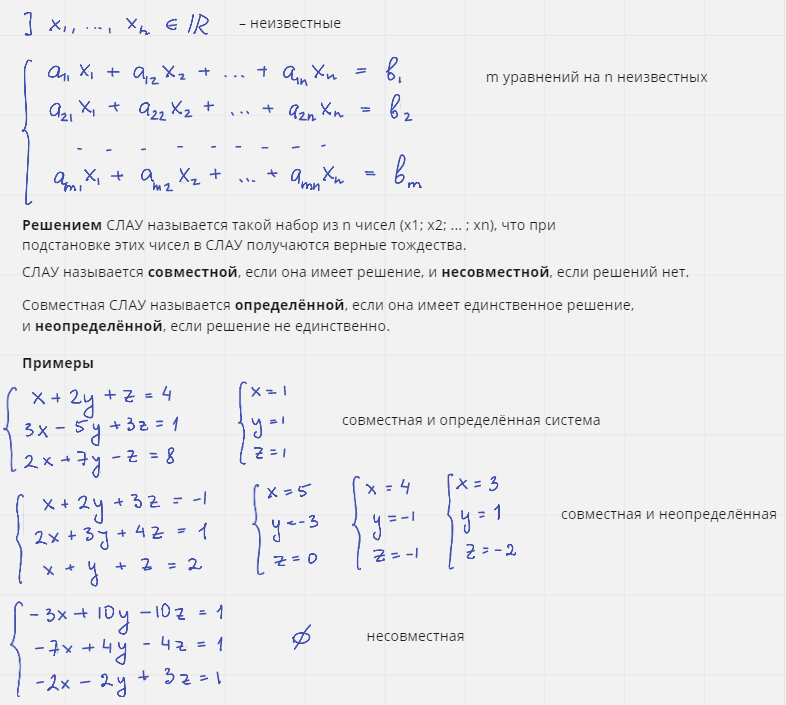 ] x₁, ..., xₙ ∈ ℝ – неизвестные
a₁₁x₁ + a₁₂x₂ + ... + a₁ₙxₙ = b₁
m уравнений на n неизвестных
a₂₁x₁ + a₂₂x₂ + ... + a₂ₙxₙ = b₂
- - - - - - - - -
aₘ₁x₁ + aₘ₂x₂ + ... + aₘₙxₙ = bₘ
Решением СЛАУ называется такой набор из n чисел (x1; x2; ... ; xn), что при
подстановке этих чисел в СЛАУ получаются верные тождества.
СЛАУ называется совместной, если она имеет решение, и несовместной, если решений нет.
Совместная СЛАУ называется определённой, если она имеет единственное решение,
и неопределённой, если решение не единственно.
Примеры
x + 2y + z = 4
3x - 5y + 3z = 1
2x + 7y - z = 8
x = 1
y = 1
z = 1
совместная и определённая система
x + 2y + 3z = -1
2x + 3y + 4z = 1
x + y + z = 2
x = 5
y = -3
z = 0
x = 4
y = -1
z = -1
x = 3
y = 1
z = -2
совместная и неопределённая
-3x + 10y - 10z = 1
-7x + 4y - 4z = 1
-2x - 2y + 3z = 1
∅
несовместная